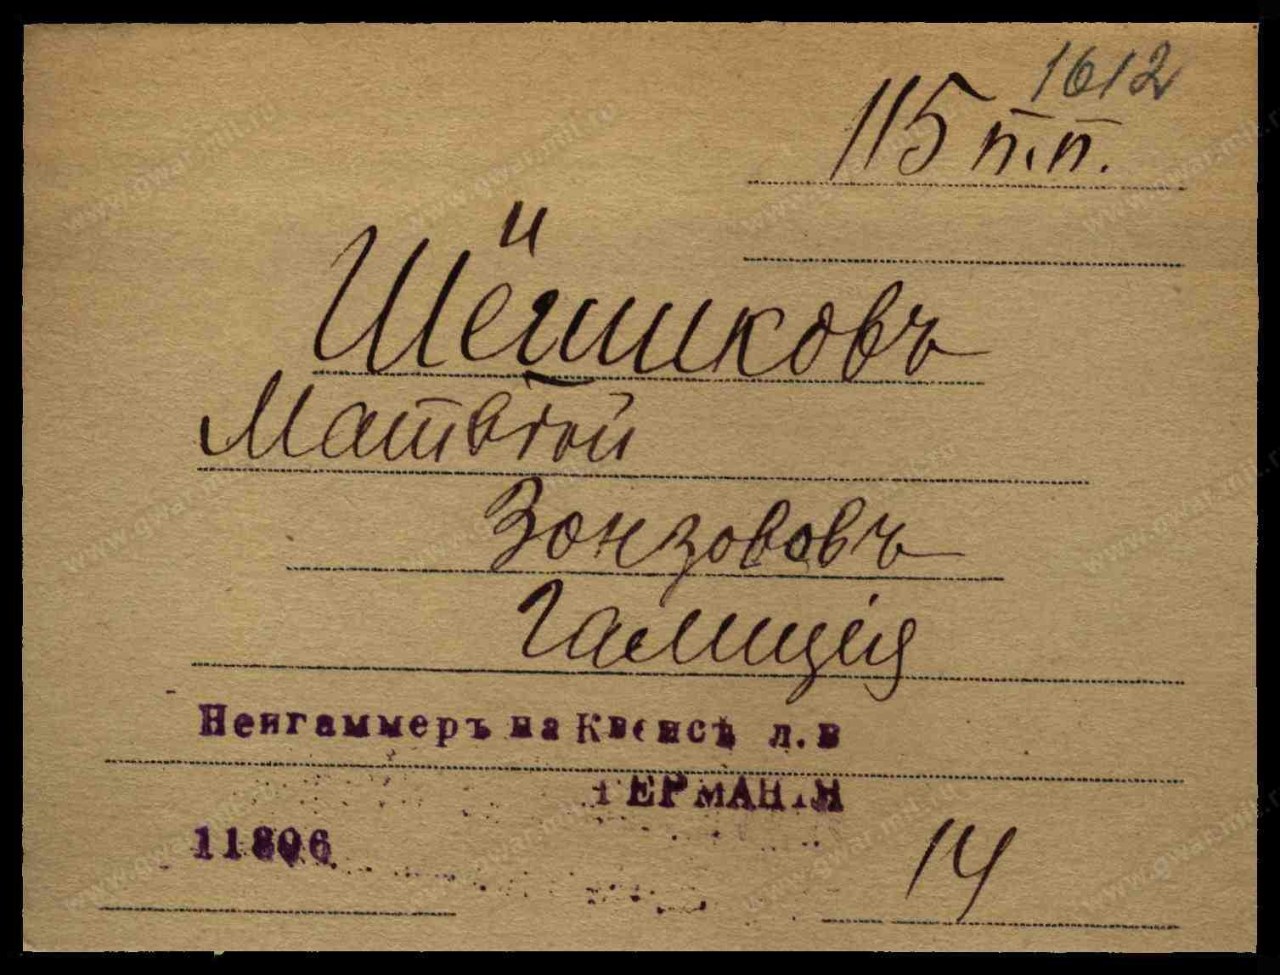 1612
115 п.п.
и
Шёгшиковъ
Матвѣй
Зонзововъ
Галиція
Нейгаммеръ на Квейсѣ л. в
ГЕРМАНІЯ
11806
14